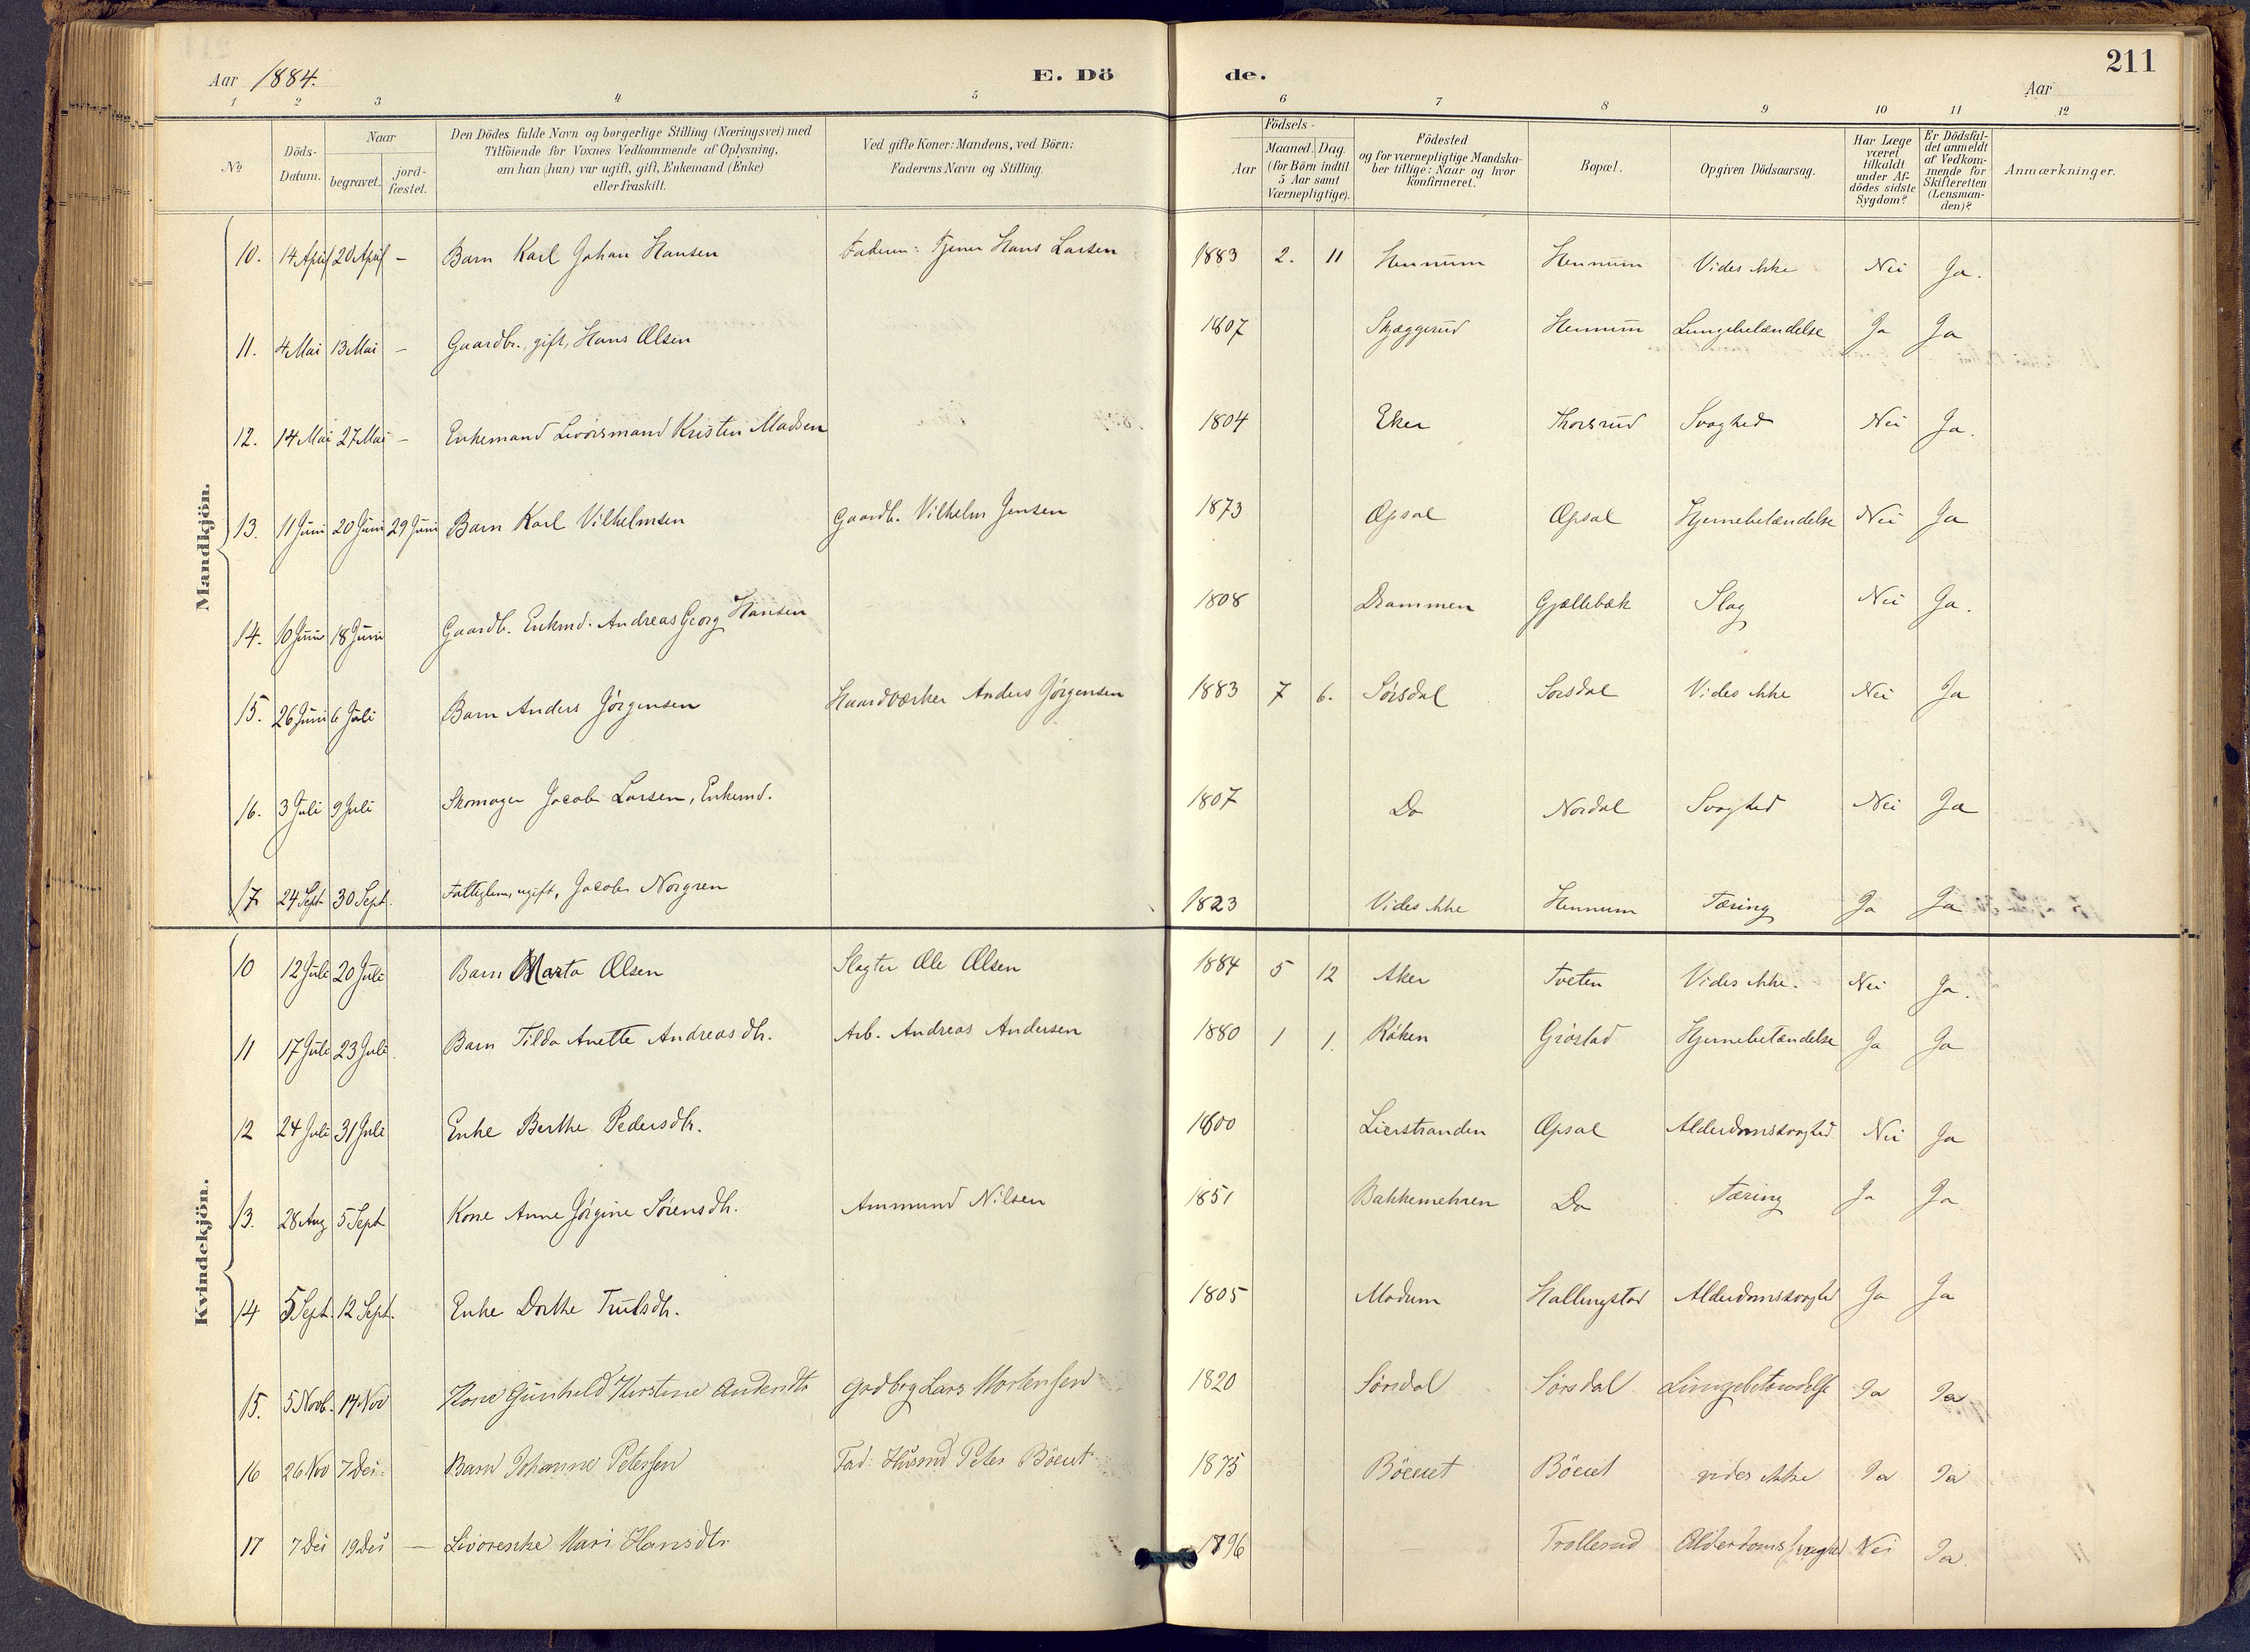 211
Aar 1884. E. Dö de. Aar
1 2 3 4 5 6 7 8 9 10 11 12
No
Döds-Datum.
Naar
begravet.
jord-fæstet.
Den Dödes fulde Navn og borgerlige Stilling (Næringsvei) med
Tilföiende for Voxnes Vedkommende af Oplysning,
om han (hun) var ugift, gift, Enkemand (Enke)
eller fraskilt.
Ved gifte Koner: Mandens, ved Börn:
Faderens Navn og Stilling.
Födsels-
Aar
Maaned. Dag.
(for Börn indtil
5 Aar samt
Værnepligtige).
Födested
og for værnepligtige Mandska-
ber tillige: Naar og hvor
konfirmeret.
Bopæl.
Opgiven Dödsaarsag.
Har Læge
været
tilkaldt
under Af-
dödes sidste
Sygdom?
Er Dödsfal-
det anmeldt
af Vedkom-
mende for
Skifteretten
(Lensman-
den)?
Anmærkninger.
Mandkjön.
10. 14 April 20 April - Barn Karl Johan Hansen Faderen: Tjener Hans Larsen 1883 2. 11 Hennum Hennum Vides ikke Nei Ja.
11. 4 Mai 13 Mai - Gaardbr., gift, Hans Olsen 1807 Skjæggerud Hennum Lungebetændelse Ja Ja
12. 14 Mai 27 Mai - Enkemand Livörsmand Kristen Madsen 1804 Eker Thorsrud Svaghed Nei Ja.
13. 11 Juni 20 Juni 29 Juni Barn Karl Vilhelmsen Gaardb. Vilhelm Jensen 1873 Opsal Opsal Hjernebetændelse Nei Ja
14. 10 Juni 18 Juni Gaardb. Enkmd. Andreas Georg Hansen 1808 Drammen Gjellebæk Slag Nei Ja.
15. 26 Juni 6 Juli Barn Anders Jörgensen Haandværker Anders Jörgensen 1883 7 6. Sörsdal Sorsdal Vides ikke Nei Ja
16. 3 Juli 9 Juli Skomager Jacob Larsen, Enkemd. 1807 Do Nordal Svaghed Nei Ja
17. 24 Sept 30 Sept. Fattiglem, ugift, Jacob Norgren 1823 Vides ikke Hennum Tæring Ja Ja
Kvindekjön.
10 12 Juli 20 Juli Barn Marta Olsen Slagter Ole Olsen 1884 5 12 Aker Tveten Vides ikke. Nei Ja.
11 17 Juli 23 Juli. Barn Tilda Anette Andreasdtr. Arb. Andreas Andersen 1880 1 1. Röken Gröstad Hjernebetændelse Ja Ja
12 24 Juli 31 Juli Enke Berthe Pedersdtr. 1800 Lierstranden Opsal Alderdomssvaghed Nei Ja
13. 28 Aug 5 Sept Kone Anne Jörgine Sörensdtr. Ammund Nilsen 1851 Bakkemehren Do Tæring Ja Ja
14 5 Sept. 12 Sept. Enke Dorthe Trulsdtr. 1805 Modum Hallingstad Alderdomssvaghd Ja Ja
15. 5 Novb. 14 Nov Kone Gunhild Kirstine Andersdtr Grdbrg Lars Mortensen 1820 Sörsdal Sörsdal Lungebetændelse Ja Ja
16 26 Nov 7 Dei Barn Johanne Petersen Fad: Husmd Peter Böeiet 1875 Böeiet Böeiet vides ikke Ja Ja
17 7 Dei 19 Dei - Livöreske Mari Hansdtr 1796 - Trollerud Alderdomssvaghed Nei Ja.